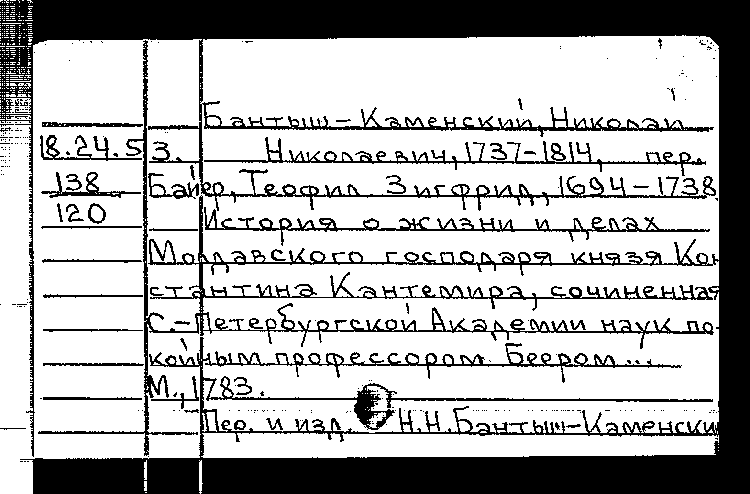 Бантыш-Каменский, Николай
18.24.5 3. Николаевич, 1737-1814, пер.
138 Байер, Теофил Зигфрид, 1694-1738
120 История о жизни и делах
Молдавского господаря князя Кон
стантина Кантемира, сочиненная
С.-Петербургской Академии наук по-
койным профессором Беером...
М., 1783.
Пер. и изд. Н.Н.Бантыш-Каменски